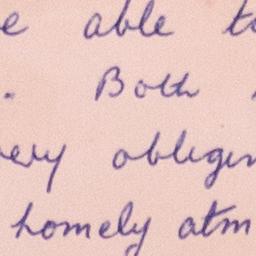 e able to
. Both
very obligin
homely atm